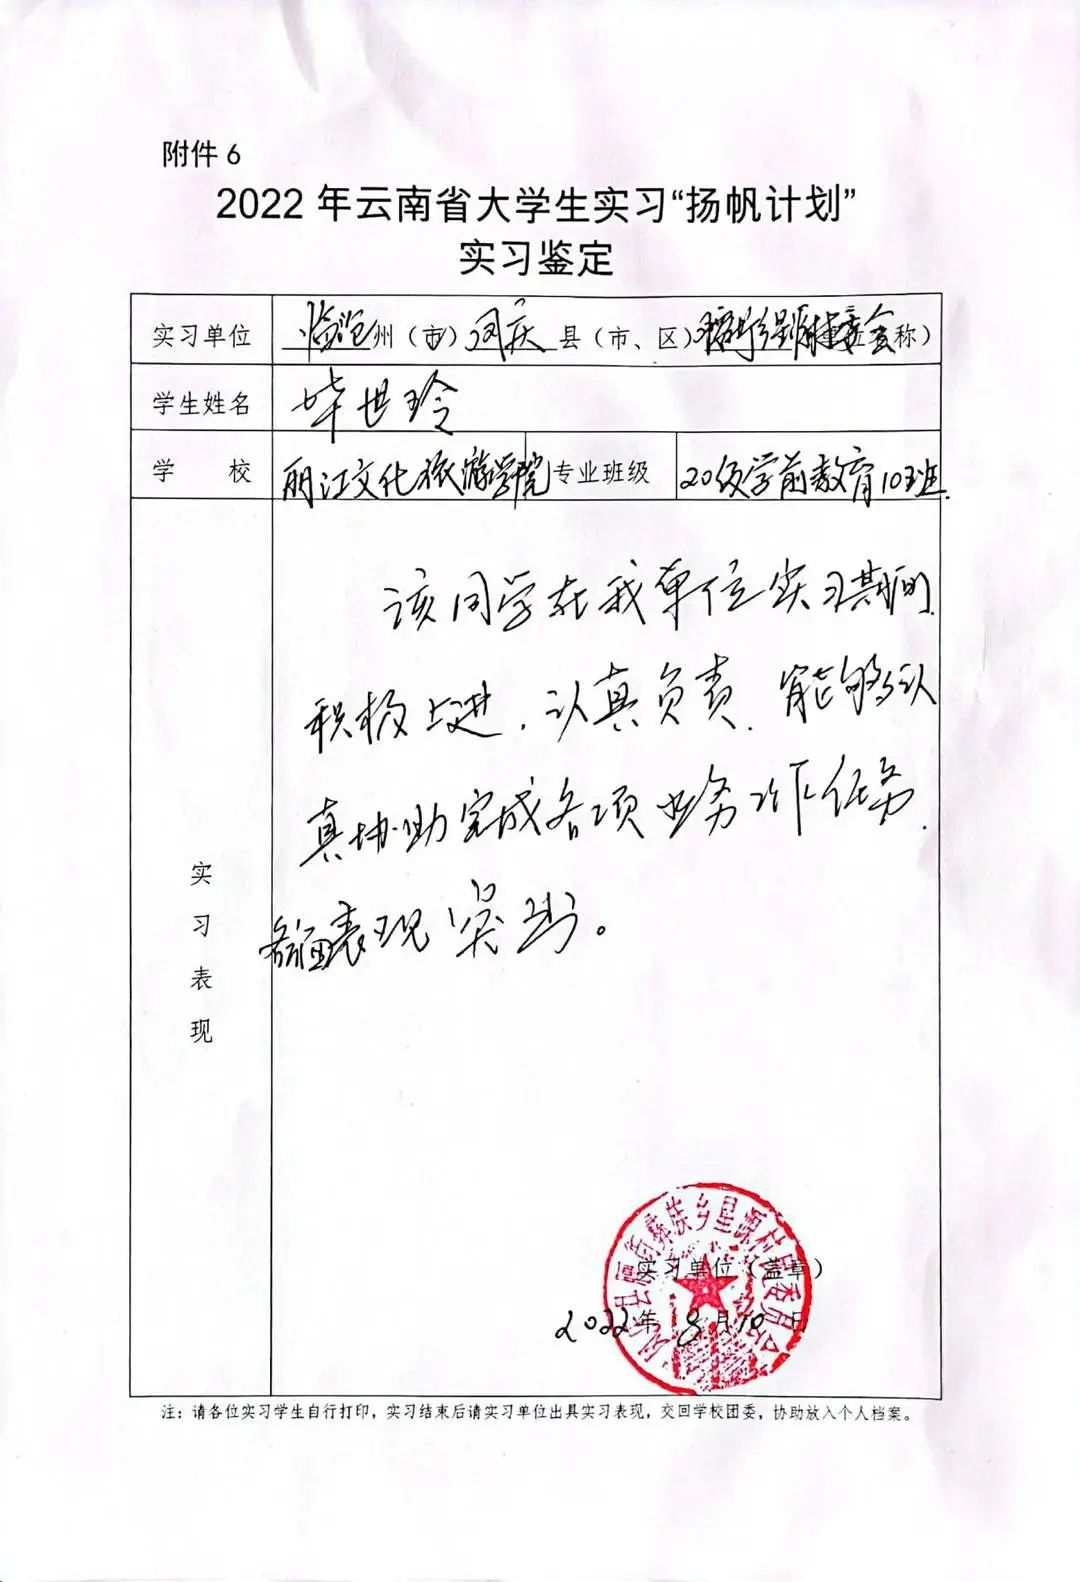 附件 6
2022 年云南省大学生实习“扬帆计划”
实习鉴定
实习单位 临沧州（市）凤庆县（市、区）称）
学生姓名 毕世玲
学 校 丽江文化旅游学院 专业班级 20级学前教育10班
实习表现
该同学在我单位实习期间
积极上进，认真负责，能够认
真协助完成各项业务工作任务，
各方面表现突出。
实习单位（盖章）
2022年8月10日
县 彝族乡星源村 委员会
注：请各位实习学生自行打印，实习结束后请实习单位出具实习表现，交回学校团委，协助放入个人档案。